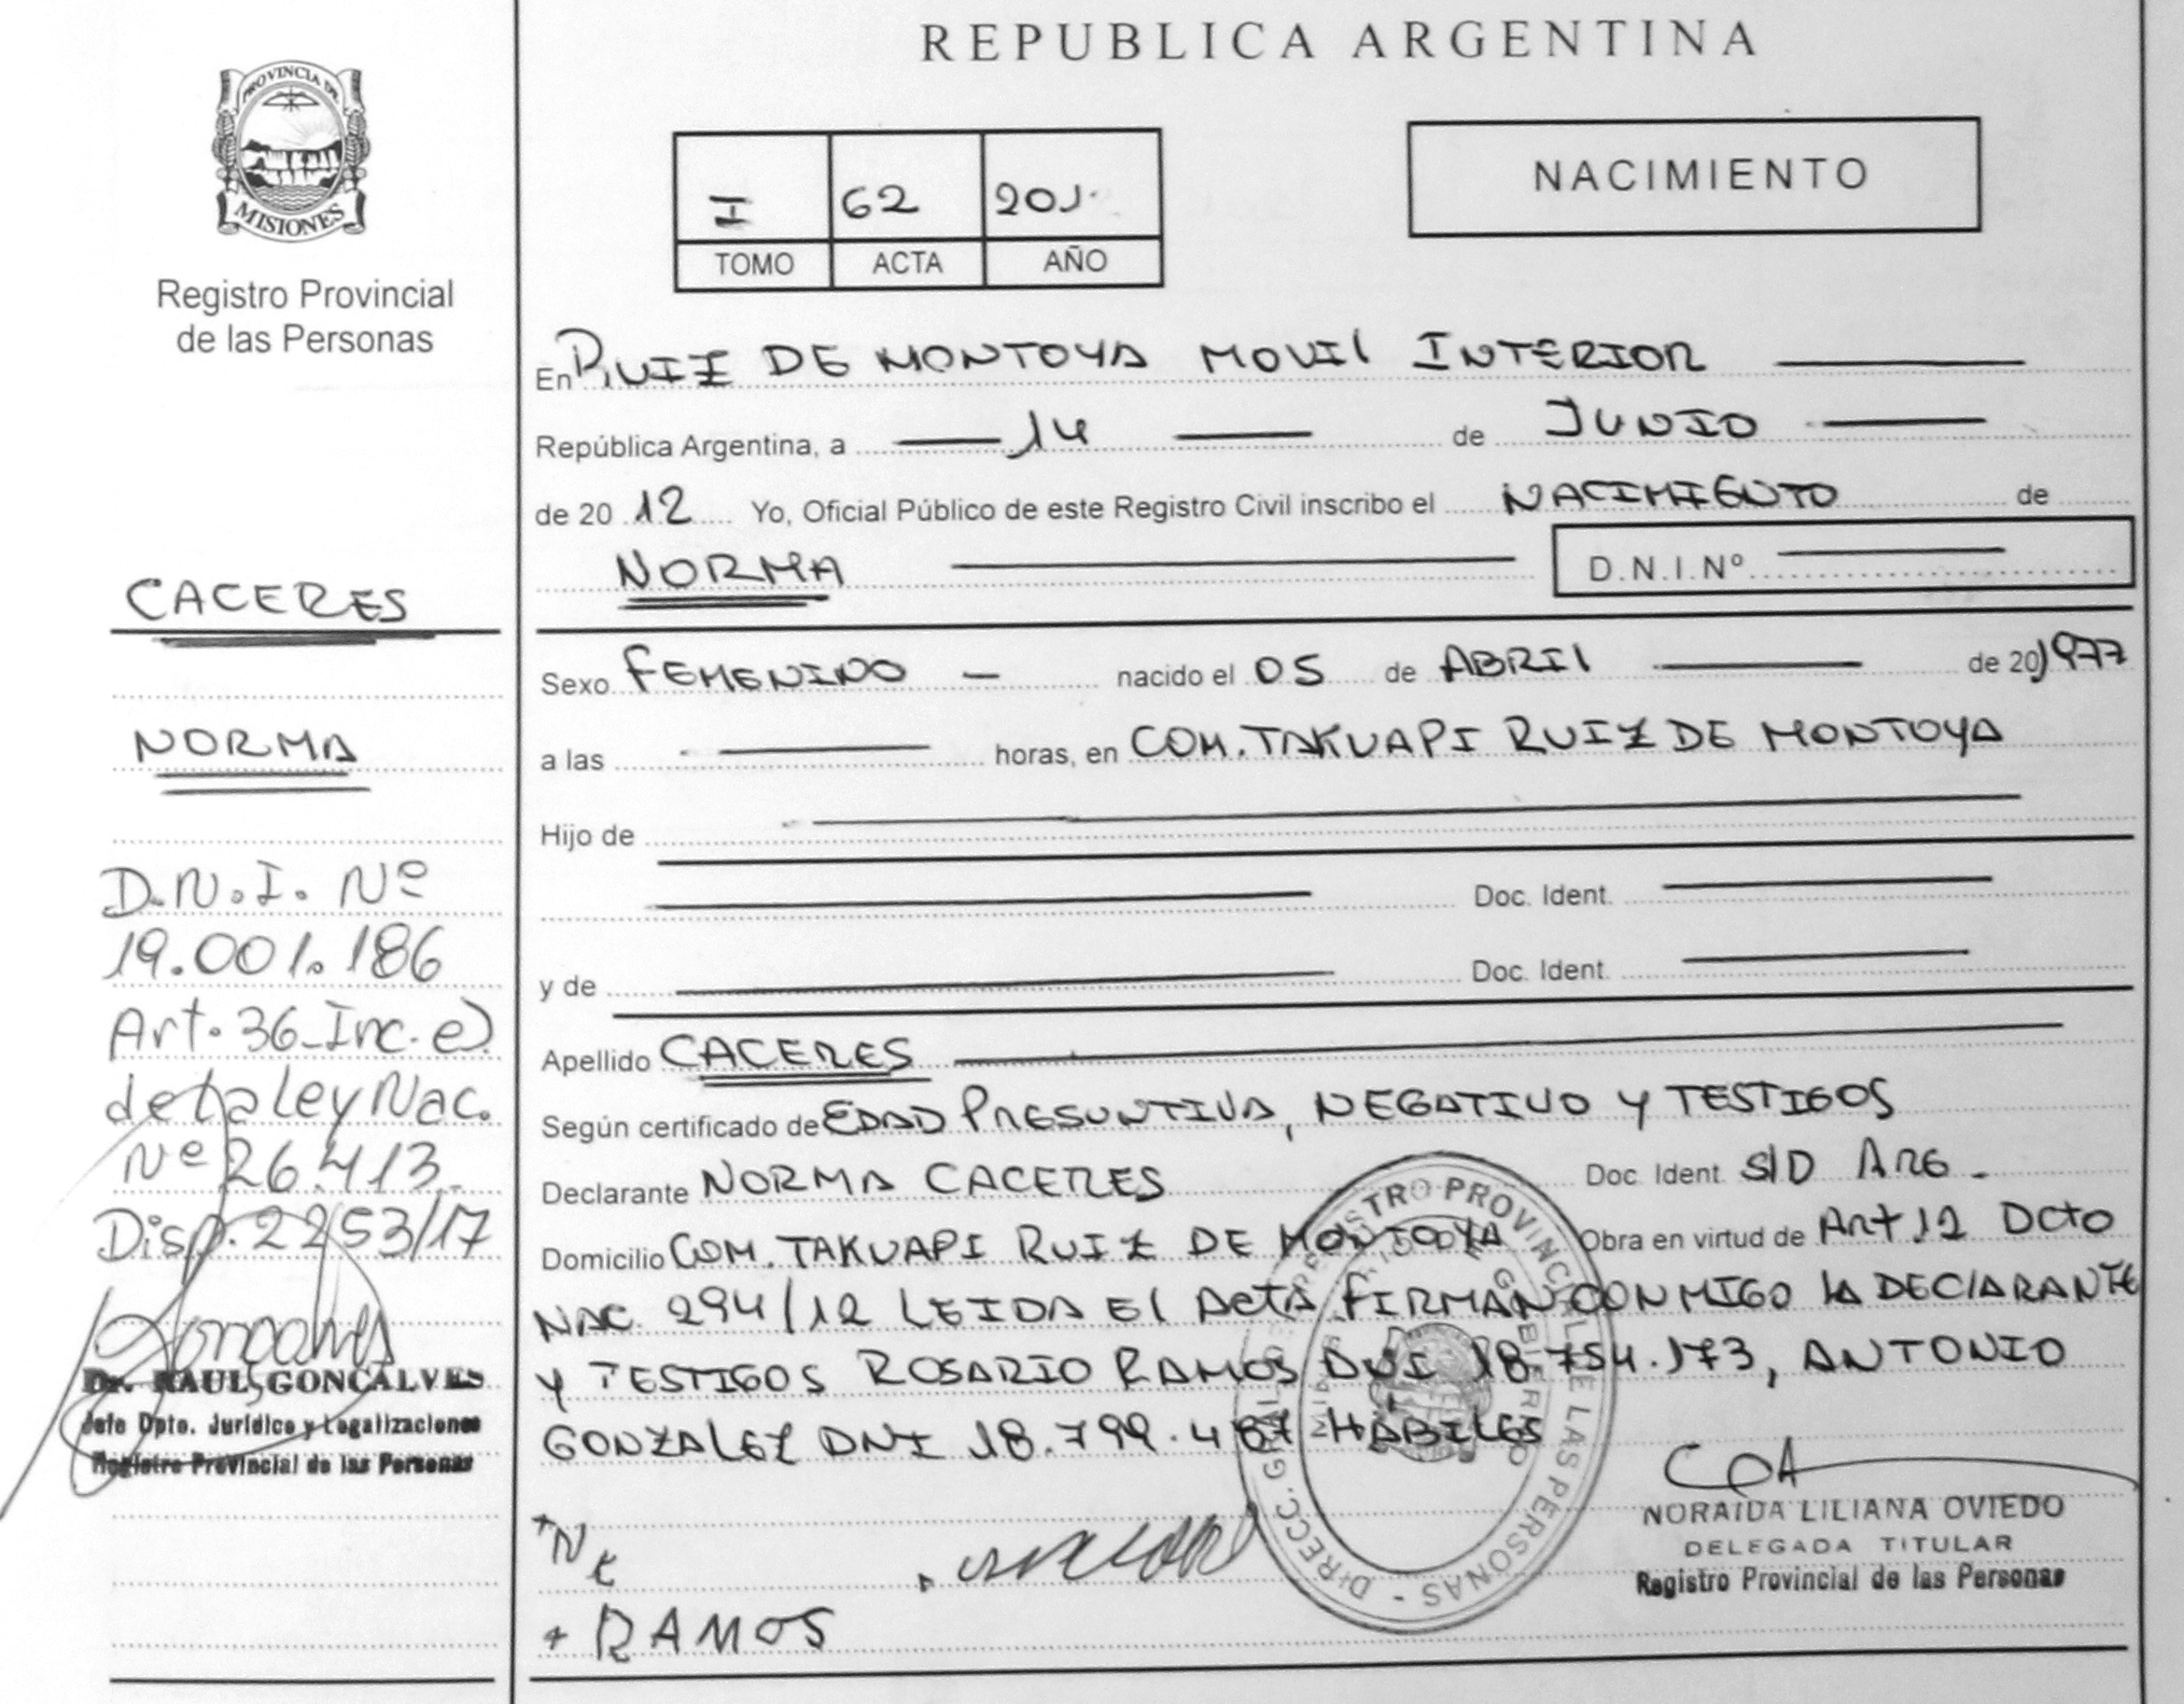 REPUBLICA ARGENTINA
PROVINCIA DE
MISIONES
Registro Provincial
de las Personas
I 62
TOMO ACTA AÑO
NACIMIENTO
En RUIZ DE MONTOYA MOVIL INTERIOR
República Argentina, a 14 de JUNIO
de 20 12 Yo, Oficial Público de este Registro Civil inscribo el NACIMIENTO de
NORMA D.N.I.Nº
Sexo FEMENINO - nacido el 05 de ABRIL de 20 1977
a las horas, en COM. TAKUAPI RUIZ DE MONTOYA
Hijo de
Doc. Ident.
y de Doc. Ident.
Apellido CACERES
Según certificado de EDAD PRESUNTIVA, NEGATIVO Y TESTIGOS
Declarante NORMA CACERES Doc. Ident. S/D ARG.
Domicilio COM. TAKUAPI RUIZ DE MONTOYA Obra en virtud de Art 12 DCTO
NAC 294/12 LEIDA El ACTA FIRMAN CONMIGO LA DECLARANTE
Y TESTIGOS ROSARIO RAMOS DNI 18.754.173, ANTONIO
GONZALEZ DNI 18.799.487 HABILES
N C
RAMOS
NORAIDA LILIANA OVIEDO
DELEGADA TITULAR
Registro Provincial de las Personas
CACERES
NORMA
D.N.I. Nº
19.001.186
Art. 36_Inc. e)
de la Ley Nac.
Nº 26.413.
Disp. 2253/17
Dr. RAUL GONCALVES
Jefe Dpto. Jurídico y Legalizaciones
Registro Provincial de las Personas
DIRECC. GRAL. DE REGISTRO PROVINCIAL DE LAS PERSONAS -